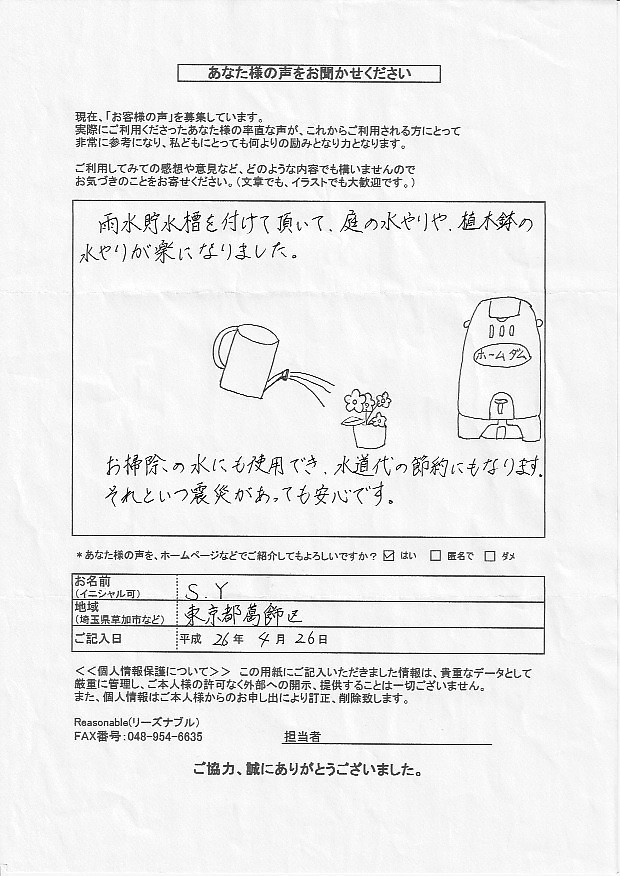 あなた様の声をお聞かせください
現在、「お客様の声」を募集しています。
実際にご利用くださったあなた様の率直な声が、これからご利用される方にとって
非常に参考になり、私どもにとっても何よりの励みとなり力となります。
ご利用してみての感想や意見など、どのような内容でも構いませんので
お気づきのことをお寄せください。(文章でも、イラストでも大歓迎です。)
雨水貯水槽を付けて頂いて、庭の水やりや、植木鉢の
水やりが楽になりました。
ホームダム
お掃除、の水にも使用でき、水道代の節約にもなります。
それといつ震災があっても安心です。
*あなた様の声を、ホームページなどでご紹介してもよろしいですか? ☑ はい □ 匿名で □ ダメ
お名前
(イニシャル可)
S.Y
地域
(埼玉県草加市など)
東京都葛飾区
ご記入日 平成 26年 4月 26日
<<個人情報保護について>> この用紙にご記入いただきました情報は、貴重なデータとして
厳重に管理し、ご本人様の許可なく外部への開示、提供することは一切ございません。
また、個人情報はご本人様からのお申し出により訂正、削除致します。
Reasonable(リーズナブル)
FAX番号:048-954-6635 担当者
ご協力、誠にありがとうございました。